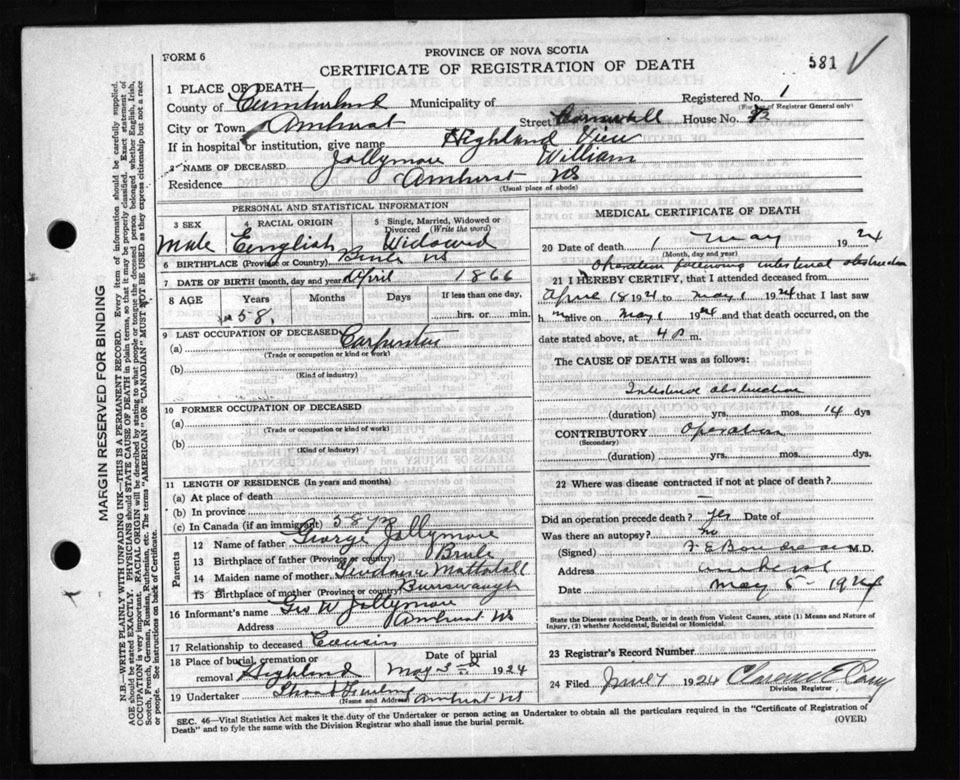 PROVINCE OF NOVA SCOTIA
FORM 6
CERTIFICATE OF REGISTRATION OF DEATH
581 √
1 PLACE OF DEATH
County of Cumberland Municipality of Registered No. 1
(For use of Registrar General only)
City or Town Amherst Street Cornwall House No.
If in hospital or institution, give name Highland View
2 NAME OF DECEASED Jollymore William
Residence Amherst NS
(Usual place of abode)
PERSONAL AND STATISTICAL INFORMATION
3 SEX Male
4 RACIAL ORIGIN English
5 Single, Married, Widowed or Divorced (Write the word) Widowed
6 BIRTHPLACE (Province or Country) Brule NS
7 DATE OF BIRTH (month, day and year) April 1866
8 AGE Years Months Days If less than one day,
58 hrs. or min.
9 LAST OCCUPATION OF DECEASED
(a) Carpenter
(Trade or occupation or kind or work)
(b)
(Kind of industry)
10 FORMER OCCUPATION OF DECEASED
(a)
(Trade or occupation or kind of work)
(b)
(Kind of industry)
11 LENGTH OF RESIDENCE (In years and months)
(a) At place of death
(b) In province
(c) In Canada (if an immigrant) 58 yrs
Parents
12 Name of father George Jollymore
13 Birthplace of father (Province or country) Brule
14 Maiden name of mother Mattatall
15 Birthplace of mother (Province or country)
16 Informant's name Geo W Jollymore
Address Amherst NS
17 Relationship to deceased Cousin
18 Place of burial, cremation or removal Highland
Date of burial May 3rd 1924
19 Undertaker Amherst NS
(Name and Address)
MEDICAL CERTIFICATE OF DEATH
20 Date of death 1 May 1924
(Month, day and year)
Operation following intestinal obstruction
21 I HEREBY CERTIFY, that I attended deceased from
April 18 1924 to May 1 1924 that I last saw
h m alive on May 1 1924 and that death occurred, on the
date stated above, at 4 P m.
The CAUSE OF DEATH was as follows:
Intestinal obstruction
(duration) yrs. mos. 14 dys
CONTRIBUTORY Operation
(Secondary)
(duration) yrs. mos. dys.
22 Where was disease contracted if not at place of death?
Did an operation precede death? Yes Date of
Was there an autopsy? no
(Signed) M.D.
Address Amherst
Date May 5 - 1924
State the Disease causing Death, or in death from Violent Causes, state (1) Means and Nature of
Injury, (2) whether Accidental, Suicidal or Homicidal.
23 Registrar's Record Number
24 Filed June 7 1924 Clarence E
Division Registrar
SEC. 46—Vital Statistics Act makes it the duty of the Undertaker or person acting as Undertaker to obtain all the particulars required in the "Certificate of Registration of
Death" and to fyle the same with the Division Registrar who shall issue the burial permit.
(OVER)
MARGIN RESERVED FOR BINDING
N.B.—WRITE PLAINLY WITH UNFADING INK—THIS IS A PERMANENT RECORD. Every item of information should be carefully supplied.
AGE should be stated EXACTLY. PHYSICIANS should STATE CAUSE OF DEATH in plain terms, so that it may be properly classified. Exact statement of
OCCUPATION is very important. RACIAL ORIGIN will be described by stating to what people or tongue the deceased person belonged whether English, Irish,
Scotch, French, German, Russian, Ruthenian, etc. The terms "AMERICAN" OR "CANADIAN" MUST NOT BE USED as they express citizenship but not a race
or people. See instructions on back of Certificate.